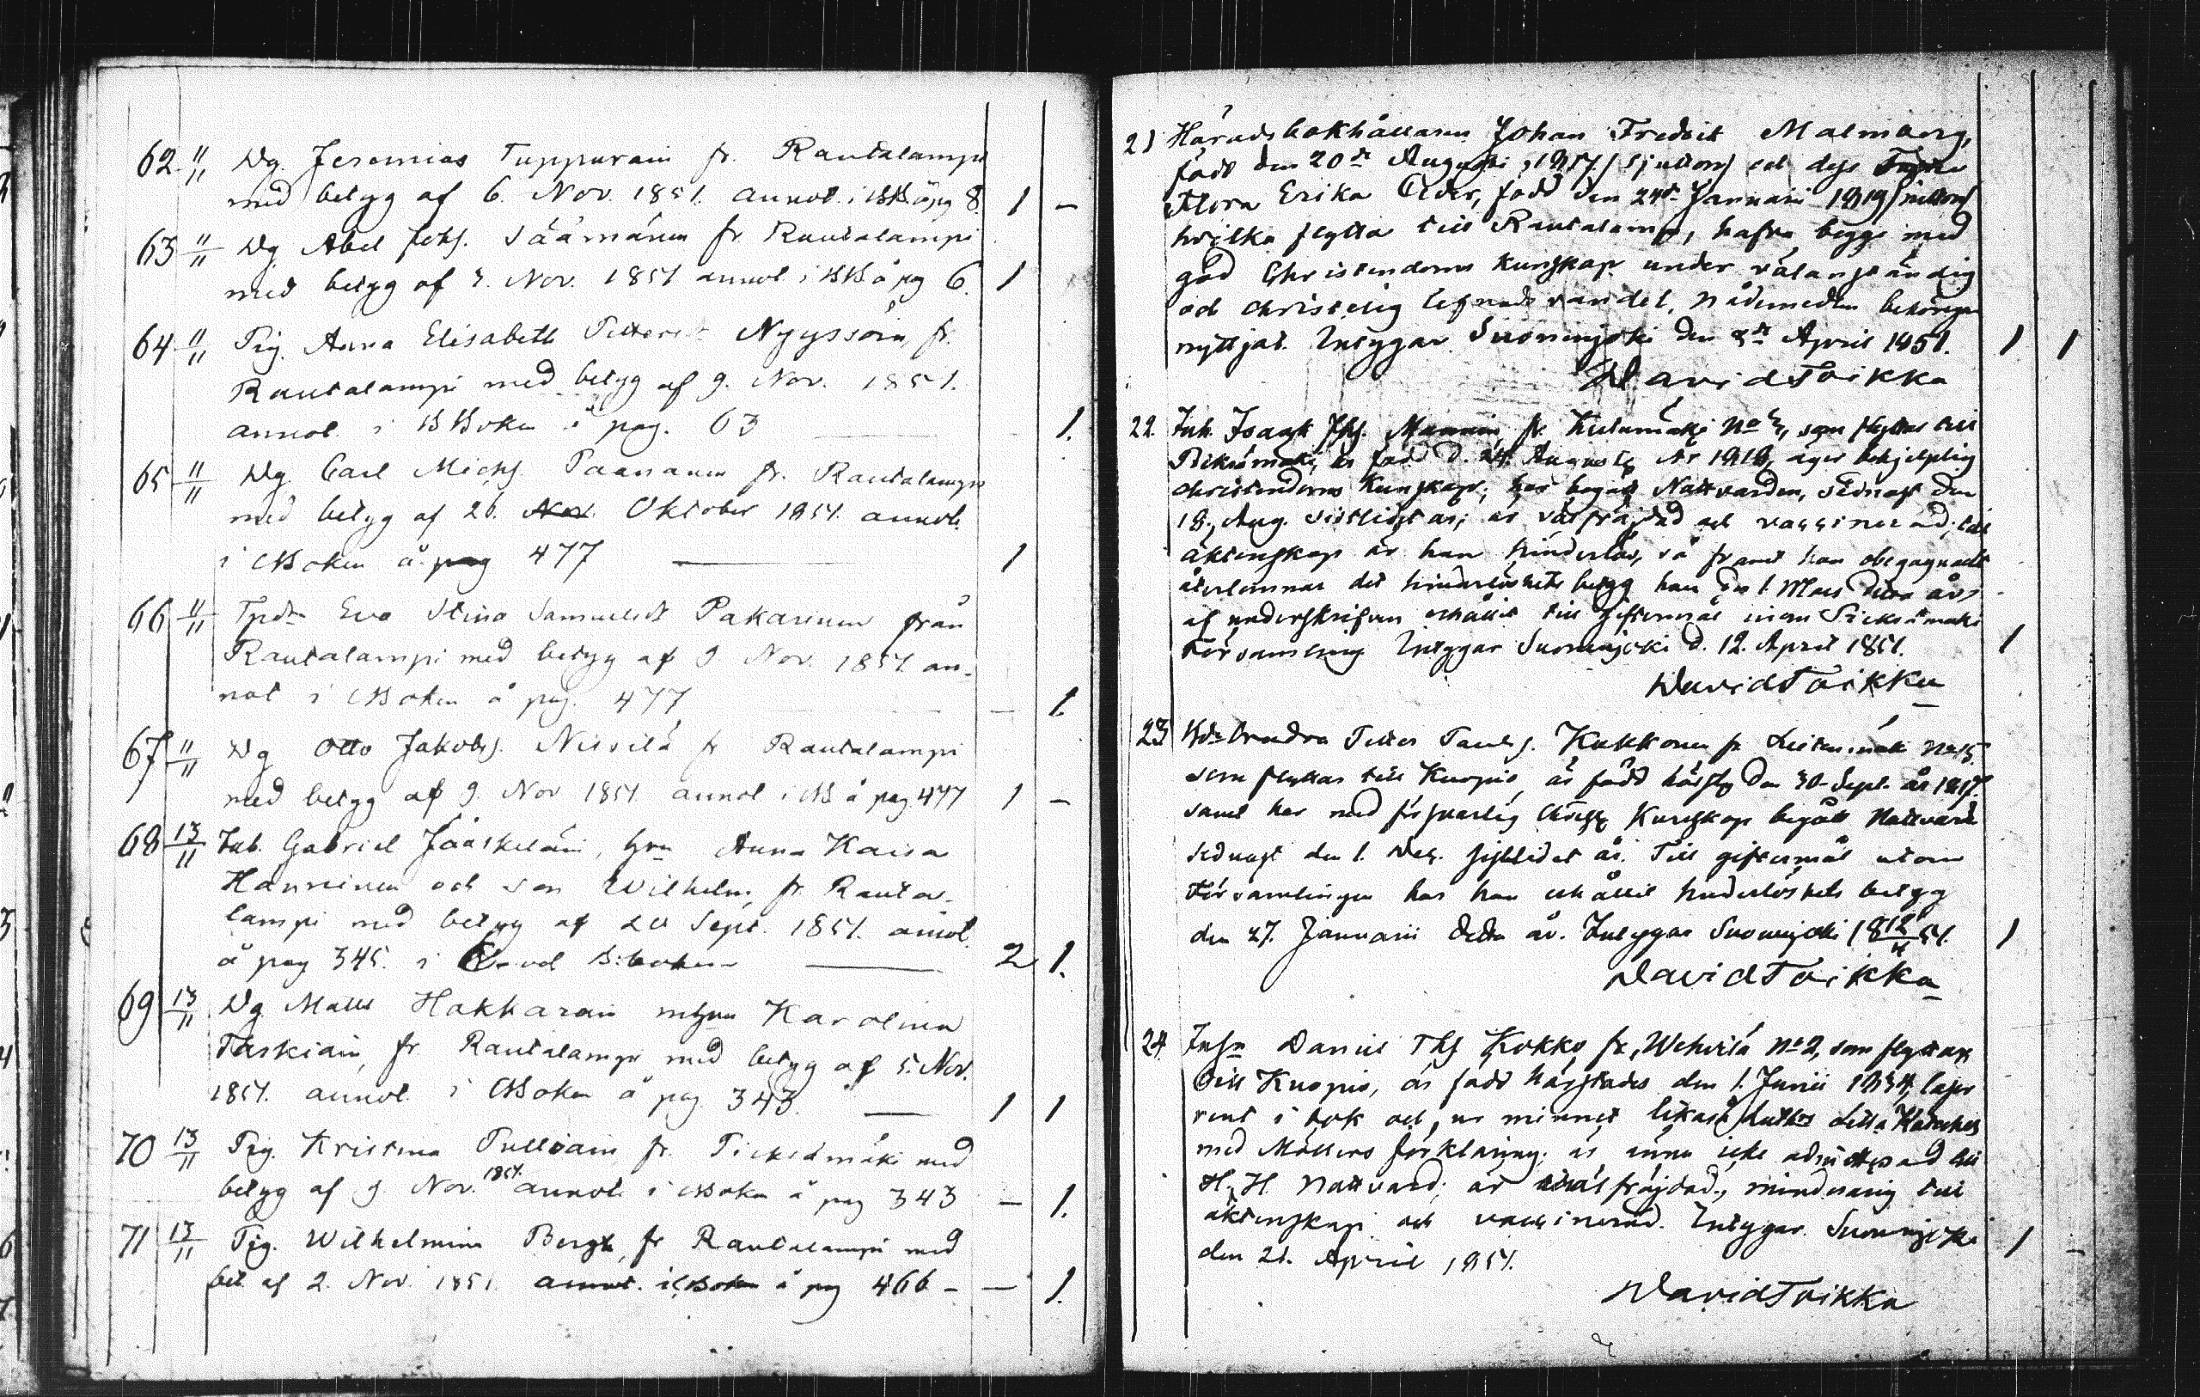 62 " Dg. Jeremias Tuppurain fr. Rautalampi
med betyg af 6. Nov. 1851. annot. i KB å pg 8. 1 –
63 " Dg Abel Johs. Säämänen fr. Rautalampi
med betyg af Nov. 1851 annot. i KB å pg 6. 1
64 " Pig. Anna Elisabeth Pettersd. Nyyssöin fr.
Rautalampi med betyg af 9. Nov. 1851.
annot. i KBoken å pag. 63 1.
65 " Dg. Carl Michs. Paananen fr. Rautalampi
med betyg af 26. Nov. Oktober 1851. annot.
i KBoken å pag 477 1
66 " Eva Stina Samuelsdt Pakarinen från
Rautalampi med betyg af 9 Nov. 1851. an-
not i KBoken å pag. 477 – 1.
67 " Dg Otto Jakobs. Niisilä fr Rautalampi
med betyg af 9. Nov 1851. annot i KB å pag 477 1 –
68 13/11 Inh. Gabriel Jääskeläin, hru Anna Kaisa
Hänninen och son Wilhelm, fr. Rauta-
lampi med betyg af 20 Sept. 1851. annot.
å pag 345. i 2 1.
69 13/11 Dg Matts Hakkarain Karolina
Taskiain, fr. Rautalampi med betyg af 5. Nov.
1851. annot. i KBoken å pag 343. 1 1
70 13/11 Pig. Kristina Pulliain fr. Pieksämäki med
betyg af 9. Nov. 1851. annot. i KBoken å pag 343 – 1.
71 13/11 Pig. Wilhelmina Bergh, fr Rautalampi med
bet af 2. Nov. 1851. annot. i KBoken å pag 466 – – 1.
21 Häradsbokhållaren Johan Fredrik Malmberg,
född den 20de Augusti 1817 /sjutton/ och dess
Flora Erika född den 24de Januari 1819 /nitton/
hvilka flytta till Rautalampi, hafva begge med
god Christendoms kunskap under välanständig
och christelig lefnadsvandel, nådemedlen behörigen
nyttjat. Intygar Suonenjoki den April 1851. 1 1
David Toikka
22. Inh. Isaak Johs. Manninen fr. Kutumäki No som flyttar till
Pieksämäki, är född d. 24. Augusti År 1818, äger behjelplig
christendoms kunskap; har begått Nattvarden, sednast den
18. Aug. sistlidet år; är välfräjdad och vaccinerad; till
äktenskap är han hinderlös, så framt han obegagnadt
återlemnar det hinderlöshets betyg han den 1. Mars detta års
af underskrifven erhållit till giftermål inom Pieksämäki
Församling Intygar Suonenjoki d. 12. April 1851. 1
David Toikka
23 Petter Pauls. Kukkonen fr. No 5.
som flyttar till Kuopio, är född härst. den 30. Sept. år 1817.
samt har med försvarlig Christl. Kunskap begått Nattvard
sednast den 1. Dec. sistlidet år. Till giftermål utom
Församlingen har han erhållit hinderlöshets betyg
den 27. Januarii detta år. Intygar Suonenjoki 18 12/4 51. 1
David Toikka
24. Daniel Ths Kokko fr. Wehvilä No 2, som flyttar
till Kuopio, är född härstädes den 1. Junii 1834, läser
rent i bok och ur minnet likaså Luthers Lilla Kateches
med Möllers förklaring. är ännu icke admitterad till
H. H. Nattvard; är välfräjdad, minderårig till
äktenskap och vaccinerad. Intygar Suonenjoki
den 21. April 1851. 1 –
David Toikka